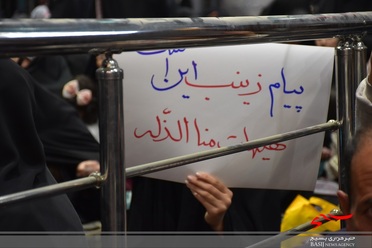 پیام زینب این است
هیهات منا الذله
خبرگزاری بسیج
BASIJ NEWS AGENCY